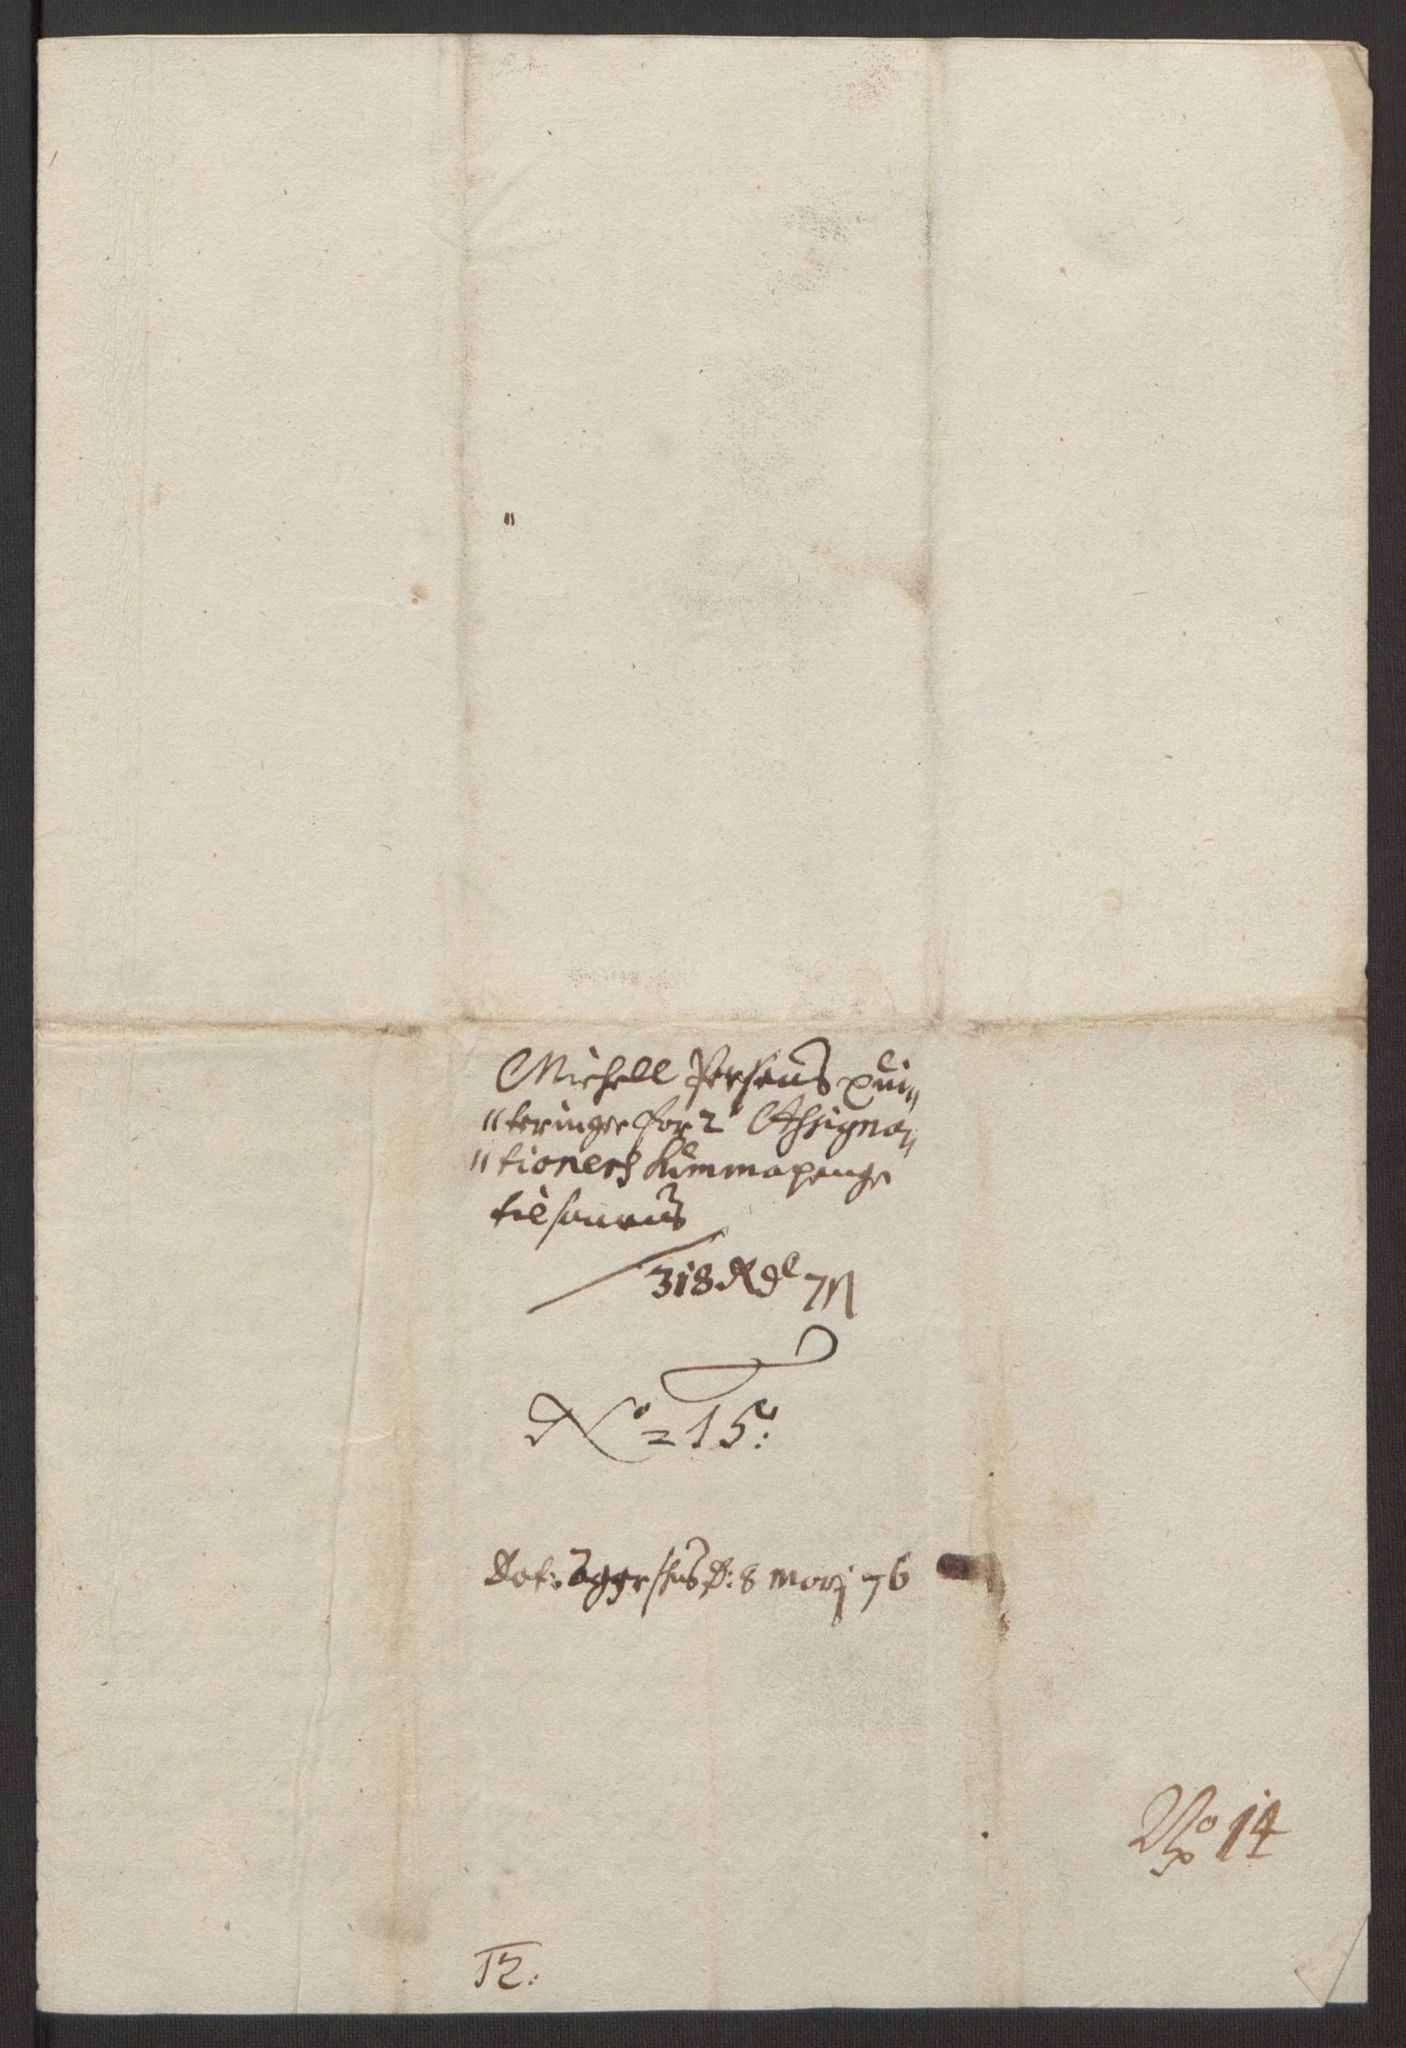 Michell Persens qui„
„teringer for 2 Assigna„
„tioners Summapenge
tilsammens
318 Rdl 7 ß
No = 15:
Dat: Aggershus d: 8 Maij 76
No 14
12: